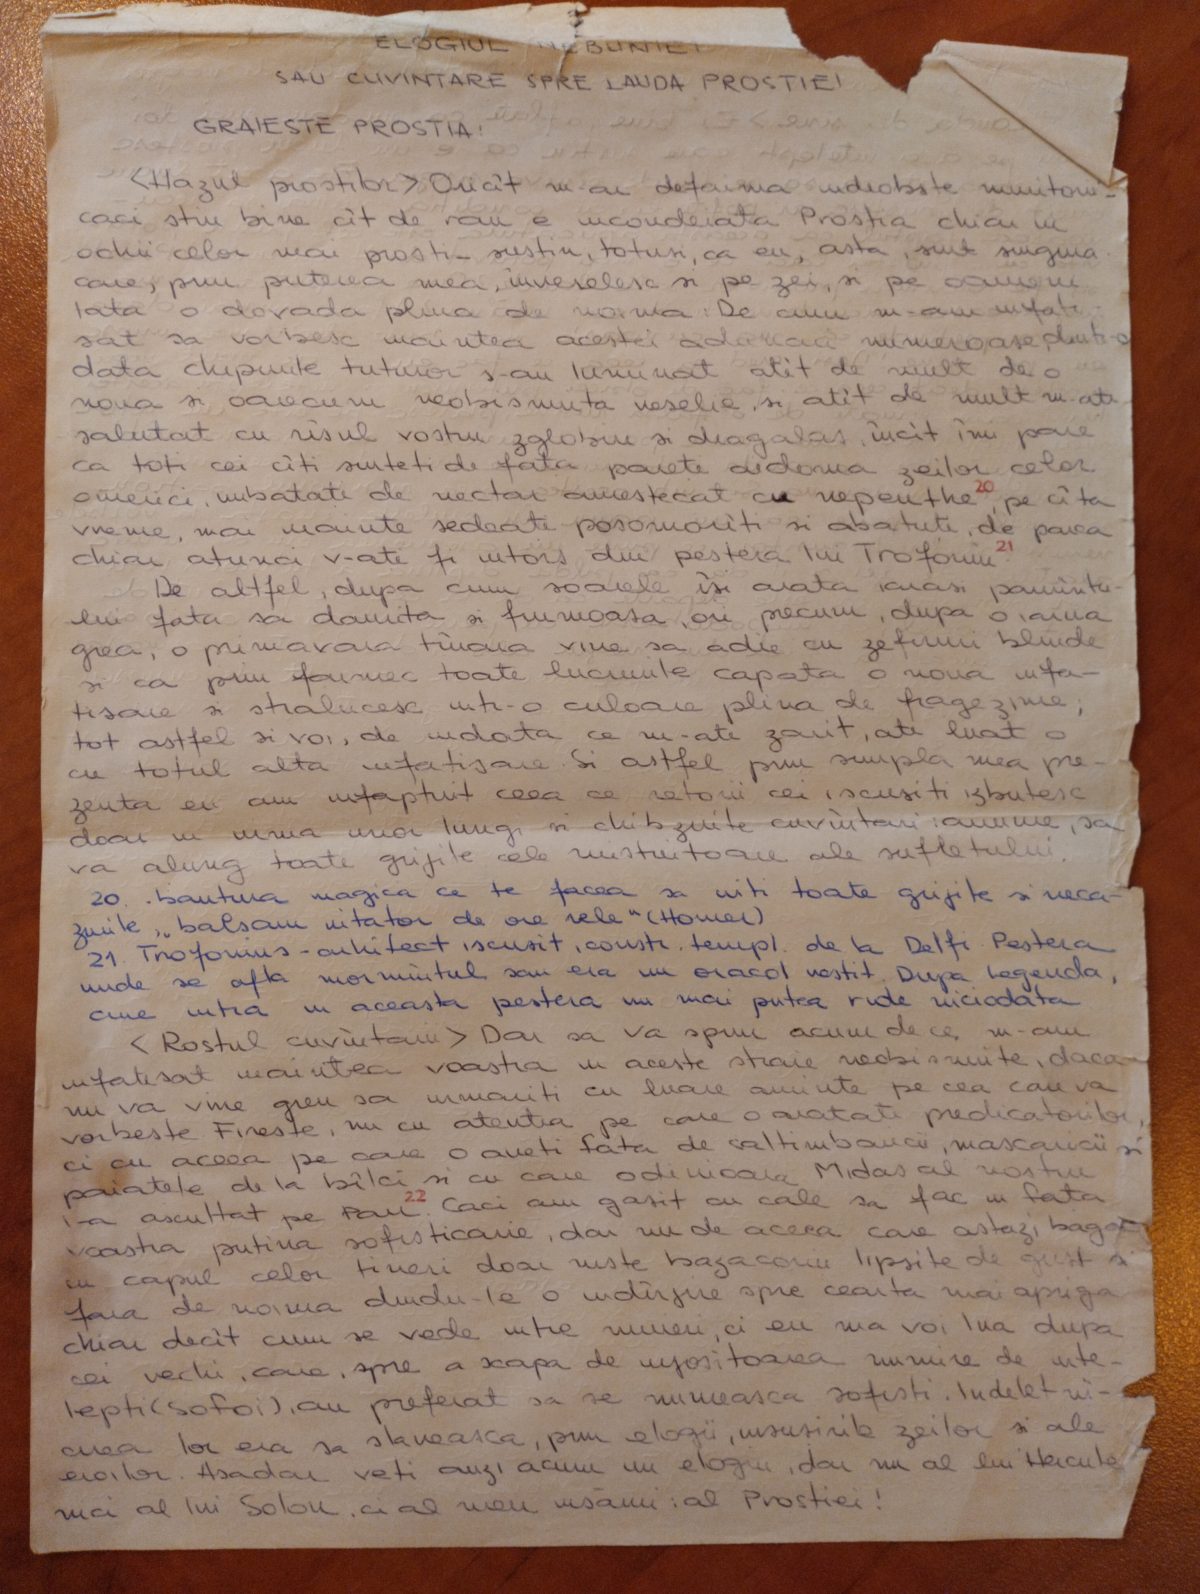 ELOGIUL NEBUNIEI
SAU CUVINTARE SPRE LAUDA PROSTIEI
GRAIESTE PROSTIA:
<Hazul prostilor> Oricît m-ar defaima indeobste muritorii-
caci stiu bine cît de rau e inconderata Prostia chiar in
ochii celor mai prosti- sustin, totusi, ca eu, asta, sint singura
care, prin puterea mea, înveselesc si pe zei, si pe oameni
Iata o dovada plina de noima: De cum m-am infati-
sat sa vorbesc inaintea acestei adunari numeroase, dintr-o
data chipurile tuturor s-au luminat atît de mult de o
noua si oarecum neobisnuita veselie, si atît de mult m-ati
salutat cu rîsul vostru zglobiu si dragalas, încît îmi pare
ca toti cei cîti sinteti de fata parete aidoma zeilor celor
omerici, imbatati de nectar amestecat cu nepenthe 20, pe cîta
vreme, mai inainte sedeati posomoriti si abatuti, de parca
chiar atunci v-ati fi intors din pestera lui Trofoniu 21.
De altfel, dupa cum soarele îsi arata iarasi pamîntu-
lui fata sa daurita si frumoasa, ori precum, dupa o iarna
grea, o primavara tînara vine sa adie cu zefiruri blinde
si ca prin farmec toate lucrurile capata o noua infa-
tisare si stralucesc intr-o culoare plina de fragezime;
tot astfel si voi, de indata ce m-ati zarit, ati luat o
cu totul alta infatisare. Si astfel prin simpla mea pre-
zenta eu am infaptuit ceea ce retorii cei iscusiti izbutesc
doar in urma unor lungi si chibzuite cuvîntari: anume, sa
va alung toate grijile cele mistuitoare ale sufletului.
20. bautura magica ce te facea sa uiti toate grijile si neca-
zurile, "balsam uitator de ore rele" (Homer)
21. Trofonius-arhitect iscusit, constr. templ. de la Delfi. Pestera
unde se afla mormîntul sau era un oracol vestit. Dupa legenda,
cine intra in aceasta pestera nu mai putea ride niciodata
<Rostul cuvîntarii> Dar sa va spun acum de ce m-am
infatisat inaintea voastra in aceste straie neobisnuite, daca
nu va vine greu sa urmariti cu luare aminte pe cea care va
vorbeste. Fireste, nu cu atentia pe care o aratati predicatorilor,
ci cu aceea pe care o aveti fata de saltimbancii, mascaricii si
paiatele de la bîlci si cu care odinioara Midas al nostru
l-a ascultat pe Pan 22. Caci am gasit cu cale sa fac in fata
voastra putina sofisticarie, dar nu de aceea care astazi baga
in capul celor tineri doar niste bazaconii lipsite de gust si
fara de noima dindu-le o indîrjire spre cearta mai apriga
chiar decît cum se vede intre muieri, ci eu ma voi lua dupa
cei vechi, care, spre a scapa de injositoarea numire de inte-
lepti (sofoi), au preferat sa se numeasca sofisti. Indeletni-
cirea lor era sa slaveasca, prin elogii, insusirile zeilor si ale
eroilor. Asadar veti auzi acum un elogiu, dar nu al lui Hercule
nici al lui Solon, ci al meu insami: al Prostiei!